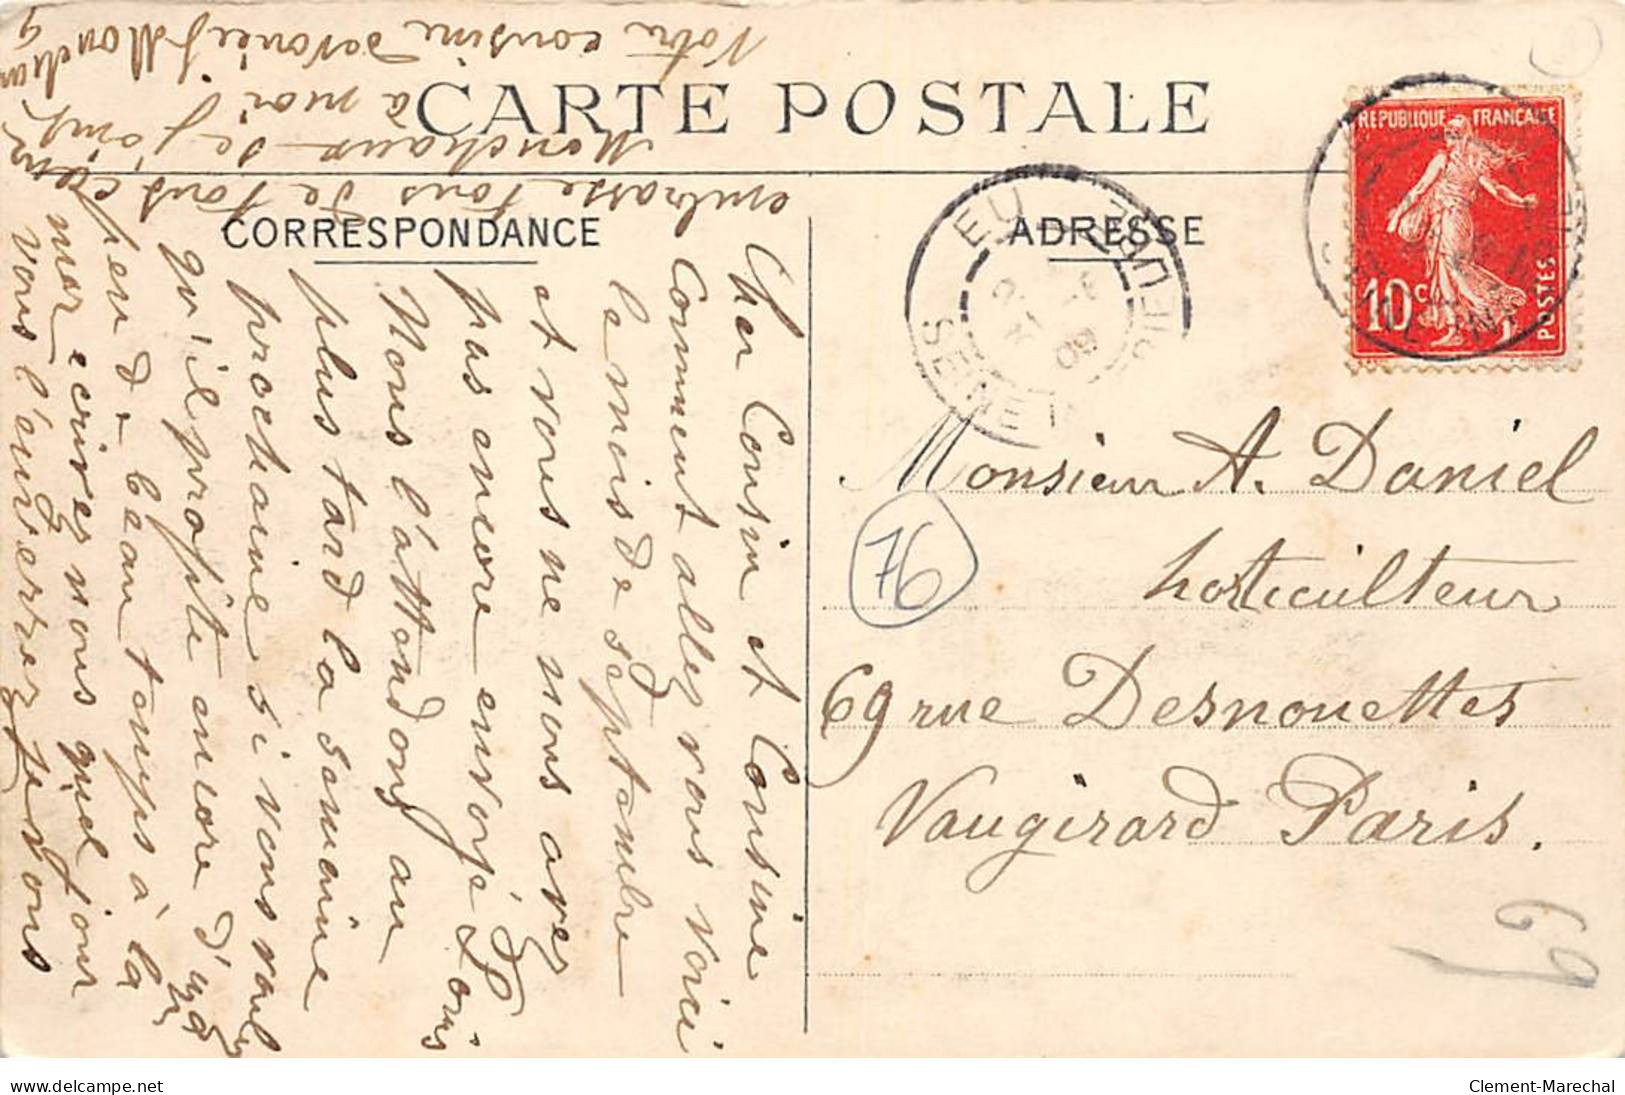 CARTE POSTALE
CORRESPONDANCE
ADRESSE
Cher Cousin et Cousine
Comment allez vous voici
le mois de septembre
et vous ne nous avez
pas encore envoyé Louis
Nous l'attendons au
plus tard la semaine
prochaine si vous voulez
qu'il profite encore d'un
peu de beau temps à la
mer ecrivez nous quel jour
vous l'enverrez nous
embrasse tous de tous cœur
Monchaux se joint
à moi
Votre cousine dévouée J Monchaux
Monsieur A. Daniel
horticulteur
69 rue Desnouettes
Vaugirard Paris.
76
69
EU
SEINE INFRE
09
REPUBLIQUE FRANÇAISE
10c
POSTES
www.delcampe.net
Clement-Marechal